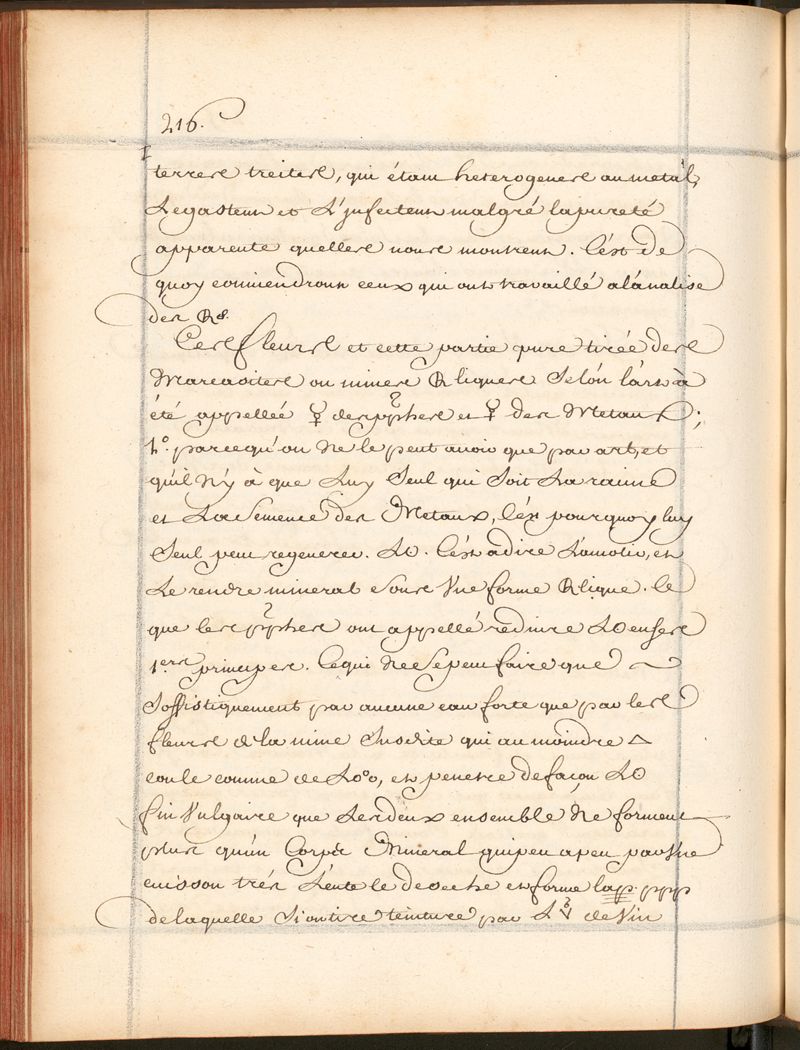 216.
terres treites, qui étant heterogenes au metal,
Le gastent et L'jnfectent malgré la pureté
apparente quelles nous montrent. C'ést de
quoy conviendront ceux qui ont travaillé a lánalise
des
Ces fleurs et cette partie pure tirée des
Marcasites ou mines liques Selón lárt à
été appellée ☿ des pphes et ☿ des Metaux;
1.º parcequ'on Ne le peut avoir que par art, et
qúil N'y à que Luy Seul qui Soit La racine
et La Semence des Metaux, C'ést pourquoy luy
Seul peut regenerer. L☉. C'ést a dire L'amolir, et
Le rendre mineral Sous Vne forme lique. Ce
que les pphes ont appellé reduire L☉ en Ses
1.ers principes. Ce qui Ne Se peut faire que
Soffistiquement par aucune eau forte que par les
fleurs de la mine Susdite qui au moindre △
coule comme de L, et penetre de façon L☉
fin Vulgaire que Les deux ensemble Ne forment
plus qu'ún Corps Mineral qui peu a peu par Vne
cuisson trés Lente le deseche en forme lap. ppp
de laquelle Si on tire teinture par L' de Vin